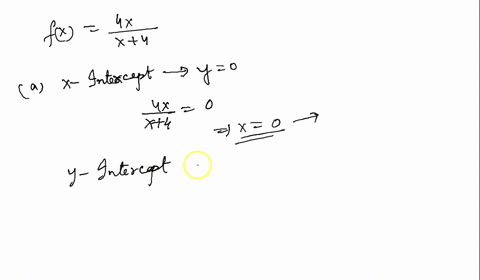 f(x) = 4x / x+4
(a) x- Intercept → y=0
4x / x+4 = 0
⇒ x = 0 →
y- Intercept